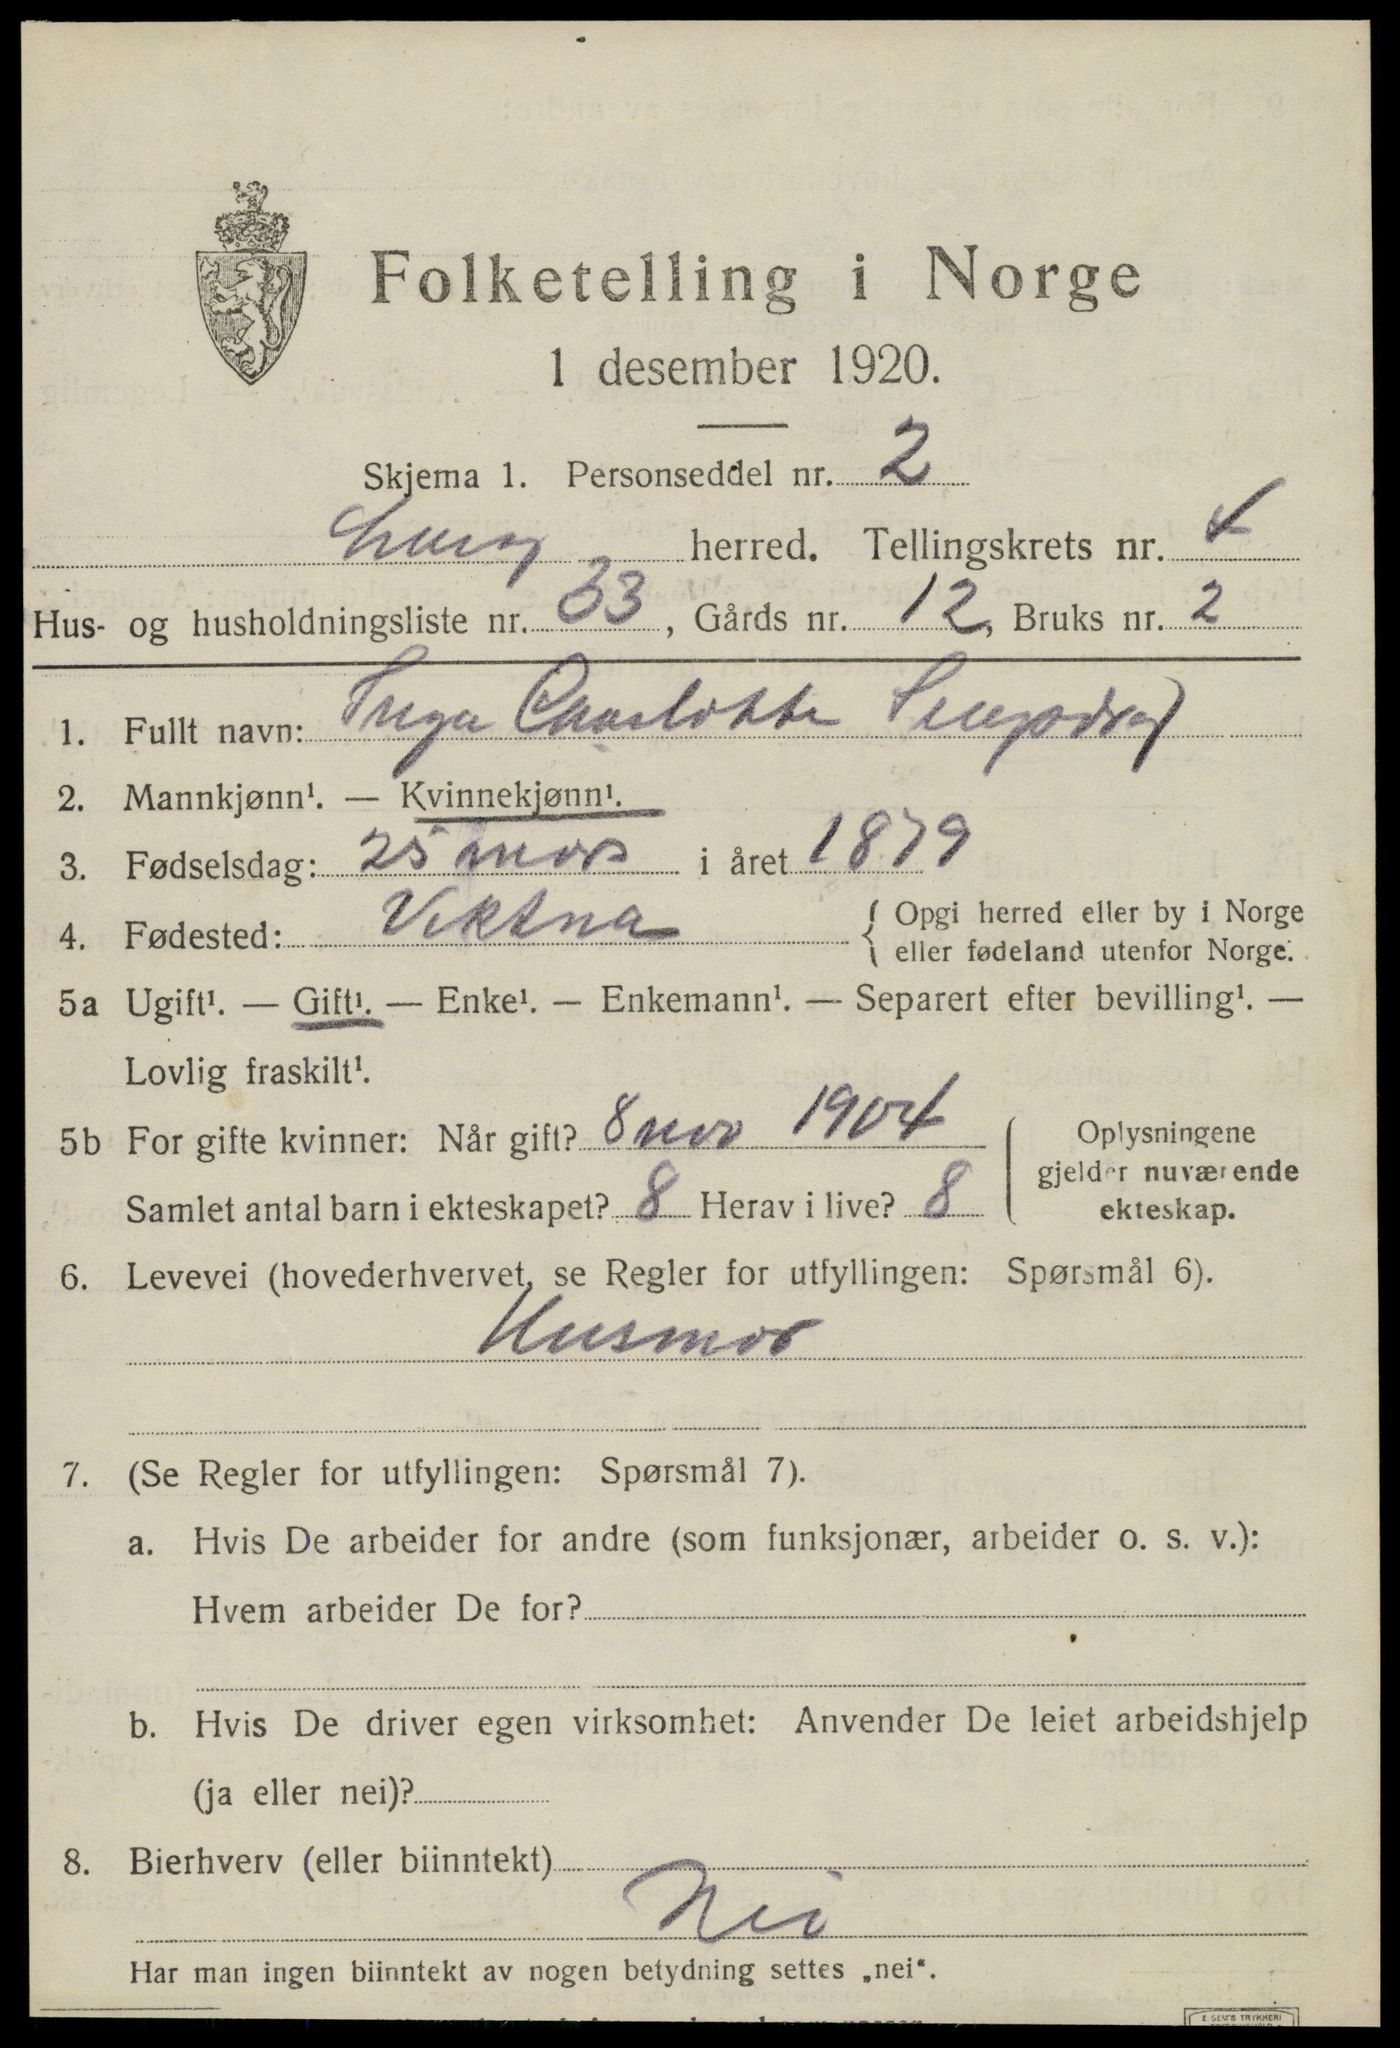 Folketelling i Norge
1 desember 1920.
Skjema 1. Personseddel nr. 2
Lurøy herred. Tellingskrets nr. 4
Hus- og husholdningsliste nr. 33, Gårds nr. 12, Bruks nr. 2
1. Fullt navn: Inga Charlotte
2. Mannkjønn¹. — Kvinnekjønn¹.
3. Fødselsdag: 25 mars i året 1879
4. Fødested: Viktna { Opgi herred eller by i Norge
eller fødeland utenfor Norge.
5a Ugift¹. — Gift¹. — Enke¹. — Enkemann¹. — Separert efter bevilling¹. —
Lovlig fraskilt¹.
5b For gifte kvinner: Når gift? 8 nov 1904
Samlet antal barn i ekteskapet? 8 Herav i live? 8
Oplysningene
gjelder nuværende
ekteskap.
6. Levevei (hovederhvervet, se Regler for utfyllingen: Spørsmål 6).
Husmor
7. (Se Regler for utfyllingen: Spørsmål 7).
a. Hvis De arbeider for andre (som funksjonær, arbeider o. s. v.):
Hvem arbeider De for?
b. Hvis De driver egen virksomhet: Anvender De leiet arbeidshjelp
(ja eller nei)?
8. Bierhverv (eller biinntekt)
Nei
Har man ingen biinntekt av nogen betydning settes „nei".
E. SEM'S TRYKKERI